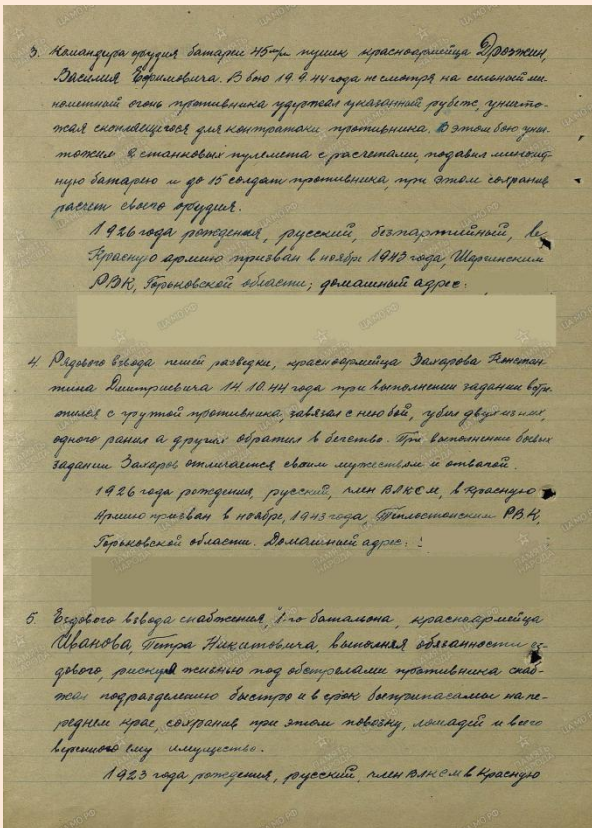 3. Командира орудия батареи 45 м/м пушек красноармейца Дрожжин,
Василия Ефимовича. В бою 19.9.44 года не смотря на сильный ми-
нометный огонь противника удержал указанный рубеж, уничто-
жая скопляещегося для контратаки противника. В этом бою унич-
тожил 2 станковых пулемета с расчетами, подавил миномет-
ную батарею и до 15 солдат противника, при этом сохранив
расчет своего орудия.
1926 года рождения, русский, безпартийный, в
Красную армию призван в ноябре 1943 года,
РВК, Горьковской области; домашный адрес:
4. Рядового взвода пешей разведки, красноармейца Захарова Констан-
тина Дмитриевича 14.10.44 года при выполнении задании встре-
тился с группой противника, завязал с нею бой, убил двух из них,
одного ранил а других обратил в бегство. При выполнении боевых
задании Захаров отличается своим мужеством и отвагой.
1926 года рождения, русский, член ВЛКСМ, в Красную
Армию призван в ноябре, 1943 года Теплостанским РВК,
Горьковской области. Домашний адрес:
5. Ездового взвода снабжения, 1-го батальона, красноармейца
Иванова, Петра Никитовича, выполняя обязанности ез-
дового, рискуя жизнью под обстрелами противника снаб-
жал подразделению быстро и в срок боеприпасами на пе-
реднем крае, сохранив при этом повозку, лошадей и всего
вверенного ему имущество.
1923 года рождения, русский, член ВЛКСМ в Красную
ЦАМО.РФ